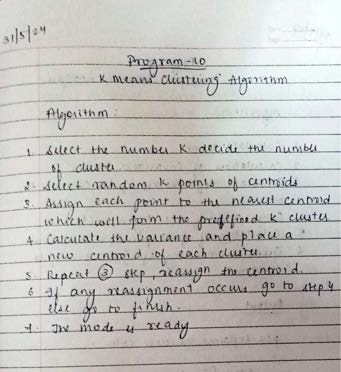 31/5/24
Program-10
K Means Clustering Algorithm
Algorithm :
1. Select the number K decide the number
of cluster
2. Select random K points of centroids
3. Assign each point to the nearest centroid
which will form the predefined K cluster
4. Calculate the variance and place a
new centroid of each cluster.
5. Repeat ③ step, reassign the centroid.
6. If any reassignment occurs go to step 4
else go to finish.
7. The mode is ready